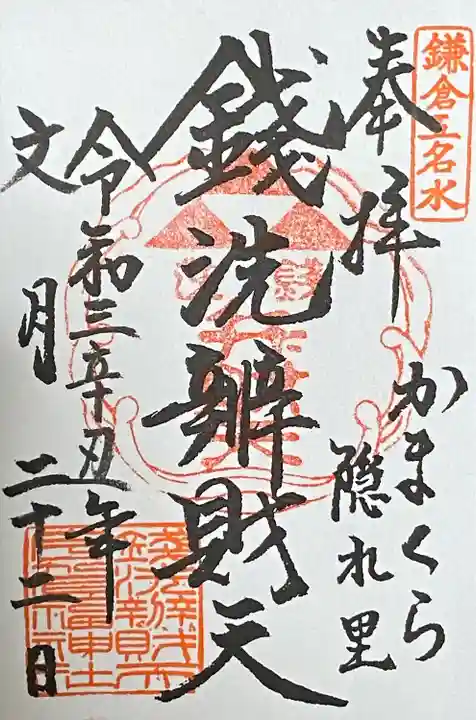 鎌倉五名水
奉拝
かまくら
隠れ里
錢洗辨財天
令和三辛丑年
文月二十二日